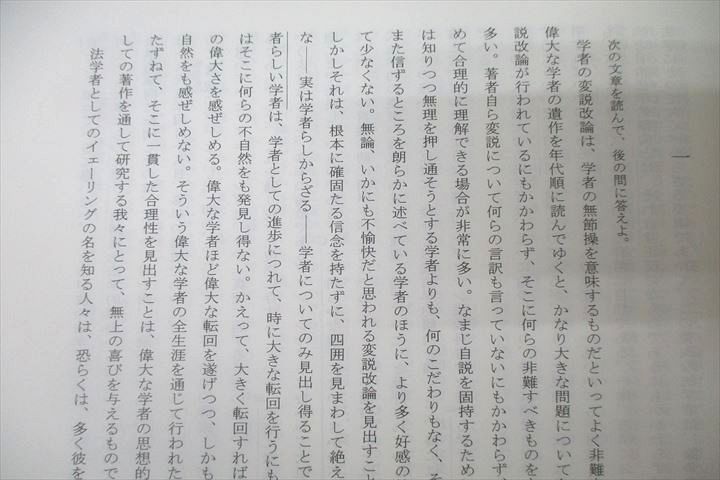 一
次の文章を読んで、後の問に答えよ。
学者の変説改論は、学者の無節操を意味するものだといってよく非難
偉大な学者の遺作を年代順に読んでゆくと、かなり大きな問題について
説改論が行われているにもかかわらず、そこに何らの非難すべきものを
多い。著者自ら変説について何らの言訳も言っていないにもかかわらず、
めて合理的に理解できる場合が非常に多い。なまじ自説を固持するため
は知りつつ無理を押し通そうとする学者よりも、何のこだわりもなく、そ
また信ずるところを朗らかに述べている学者のほうに、より多く好感の
て少なくない。無論、いかにも不愉快だと思われる変説改論を見出すこ
しかしそれは、根本に確固たる信念を持たずに、四囲を見まわして絶え
な――実は学者らしからざる――学者についてのみ見出し得ることで
者らしい学者は、学者としての進歩につれて、時に大きな転回を行うにも
はそこに何らの不自然をも発見し得ない。かえって、大きく転回すれば
の偉大さを感ぜしめる。偉大な学者ほど偉大な転回を遂げつつ、しかも
自然をも感ぜしめない。そういう偉大な学者の全生涯を通じて行われた
たずねて、そこに一貫した合理性を見出すことは、偉大な学者の思想的
しての著作を通して研究する我々にとって、無上の喜びを与えるもので
法学者としてのイェーリングの名を知る人々は、恐らくは、多く彼を